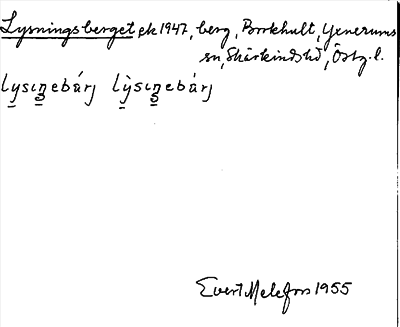 Lysningsberget ek 1947, berg, Borkhult, Yxnerums
sn, Skärkinds hd, Östg. l.
lysıŋebárj lỳsıŋebárj
Evert Melefors 1955